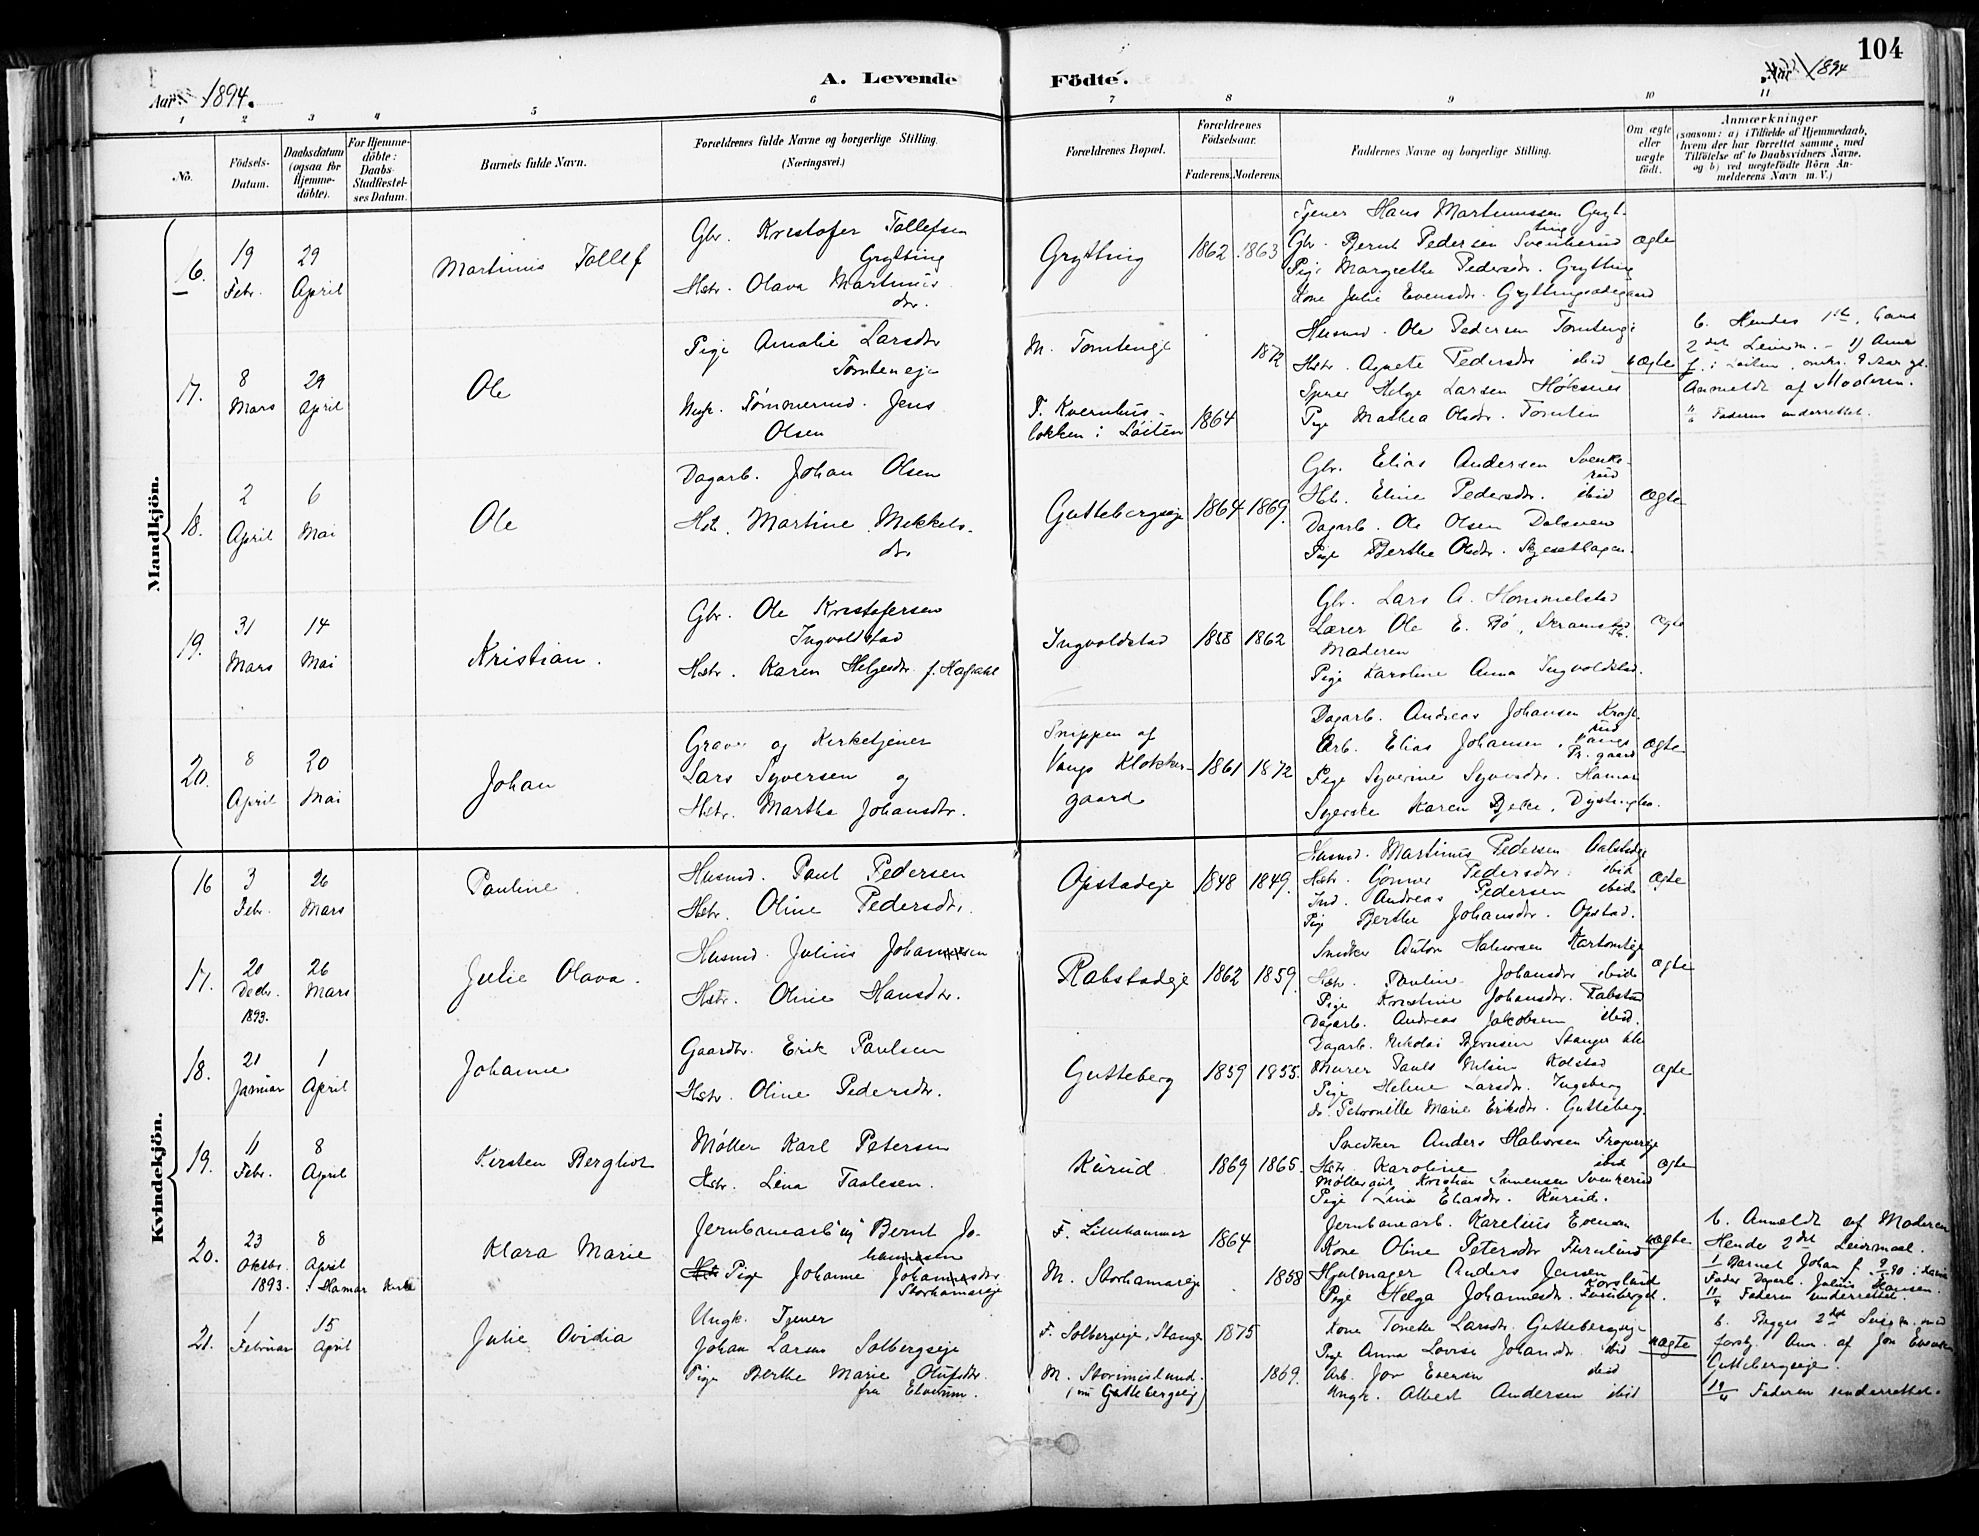 104
Aar 1894.
A. Levende Födte.
1894
1 2 3 4 5 6 7 8 9 10 11
No.
Födsels-Datum.
Daabsdatum (ogsaa for Hjemme-döbte).
For Hjemme-döbte: Daabs-Stadfæstel-ses Datum.
Barnets fulde Navn.
Forældrenes fulde Navne og borgerlige Stilling. (Næringsvei.)
Forældrenes Bopæl.
Forældrenes Födselsaar.
Faderens. Moderens.
Faddernes Navne og borgerlige Stilling.
Om ægte eller uægte födt.
Anmærkninger
(saasom: a) i Tilfælde af Hjemmedaab,
hvem der har forrettet samme, med
Tilföielse af to Daabsvidners Navne,
og b) ved uægtefödte Börn An-
melderens Navn m. V.)
Mandkjön.
16.
19 Febr.
29 April
Martinus Tollef
Gbr. Kristofer Tollefsen
Grytting
Hstr. Olava Martinus
dr.
Grytting
1862 1863
Tjener Hans Martinussen Gryt-
ting
Gbr. Bernt Pedersen Svenkerud
Pige Margrethe Pedersdr. Grytting
Kone Julie Evensdr. Gryttingsødegaard
ægte
17.
8 Mars
29 April
Ole
Pige Amalie Larsdtr
Tomteneje
Ungk. Tømmermd. Jens
Olsen
M. Tomteneje
1872
F. Kvernhus-
løkken i Løiten
1864
Husmd. Ole Pedersen Tomteneje
Hstr. Agnete Pedersdtr ibid
Tjener Helge Larsen Høksnes
Pige Mathea Olsdtr. Tomten
uægte
b. Hendes 1ste, hans
2det Leierm.
Anmeldt af Moderen.
Faderen underrettet.
18.
2 April
6 Mai
Ole
Dagarb. Johan Olsen
Hst. Martine Mikkels-
dr.
Guttebergseje
1864 1869.
Gbr. Elias Andersen Svenke-
rud
Hst. Eline Pedersdr. ibid
Dagarb. Ole Olsen
Pige Berthe Olsdr.
ægte
19.
31 Mars
14 Mai
Kristian.
Gbr. Ole Kristofersen
Ingvoldstad
Hstr. Karen Helgesdr.
Ingvoldstad
1858 1862
Gbr. Lars A. Hommelstad
Lærer Ole E. Bø,
Moderen
Pige Karoline Anna Ingvoldstad.
ægte
20.
8 April
20 Mai
Johan
Graver og Kirketjener
Lars Syversen og
Hstr. Martha Johansdtr.
Snippen af
Vangs Klokker-
gaard
1861 1872
Dagarb. Andreas Johansen Kraft-
rud
Arb. Elias Johansen, Vangs
Pr. gaard
Pige Syverine Syversdtr. Hamar
Syerske Karen Bjerke, Dystingbo.
ægte
Kvindekjön.
16
3 Febr.
26 Mars
Pauline.
Husmd. Paul Pedersen
Hstr. Oline Pedersdr.
Opstadeje
1848 1849.
Husmd. Martinus Pedersen
Hstr. Gunnor Pedersdtr. ibid
Ind. Andreas Pedersen ibid.
Pige Berthe Johansdtr. Opstad.
ægte
17.
20 Decbr. 1893.
26 Mars
Julie Olava.
Husmd. Julius Johannesen
Hstr. Oline Hansdtr.
Rabstadeje
1862 1859.
Snedker Anton Halvorsen
Hstr. Pauline Johansdtr ibid
Pige Kristine Johansdtr. Rabstad
Dagarb. Andreas Jakobsen ibid.
ægte
18.
21 Januar
1 April
Johanne
Gaardbr. Erik Paulsen
Hstr. Oline Pedersdtr.
Gutteberg
1859 1855.
Dagarb. Nikolai
Murer Pauls Nilsen Kolstad
Pige Helene Larsdtr. Ingeberg
do. Petronille Marie Eriksdtr. Gutteberg.
ægte
19.
11 Febr.
8 April
Kirsten Bergliot
Møller Karl Petersen
Hstr. Lina Paulesen.
Kurud.
1869 1865.
Snedker Anders Halvorsen
Hstr. Karoline ibid
Møllergut Kristian Simensen Svenkerud
Pige Lina Eliasdtr. Kurud.
ægte
20.
23 Oktbr. 1893.
8 April
i Hamar Kirke
Klara Marie
Jernbanearb. Bernt Jo-
hannesen
Pige Johanne Johannesdtr
Storhamareje
F. Lillehammer
1864
M. Storhamareje
1858
Jernbanearb. Karelius Evensen
Kone Oline Petersdtr Furulund
Hjulmager Anders Jensen Korslund
Pige Helga Johannesdtr. Furuberget.
uægte
b. Anmeldt af Moderen
Hendes 2det Leiermaal.
1 Barnet Johan f.
Fader Dagarb. Julius Hansen.
11/4 Faderen underrettet.
21.
1 Februar
15 April
Julie Ovidia
Ungk. Tjener
Johan Larsen Solbergseje
Pige Berthe Marie Olufsdtr.
fra Elverum.
F. Solbergseje, Stange
1875
M.
(nu Guttebergseje)
1869.
Kone Tonette Larsdtr. Guttebergseje
Pige Anna Lovise Johansdtr. ibid
Arb. Jon Evensen ibid
Ungk. Albert Andersen ibid
uægte
b. Begges 2det Leierm.
Anm. af Jon Evensen
Guttebergseje.
19/4 Faderen underrettet.